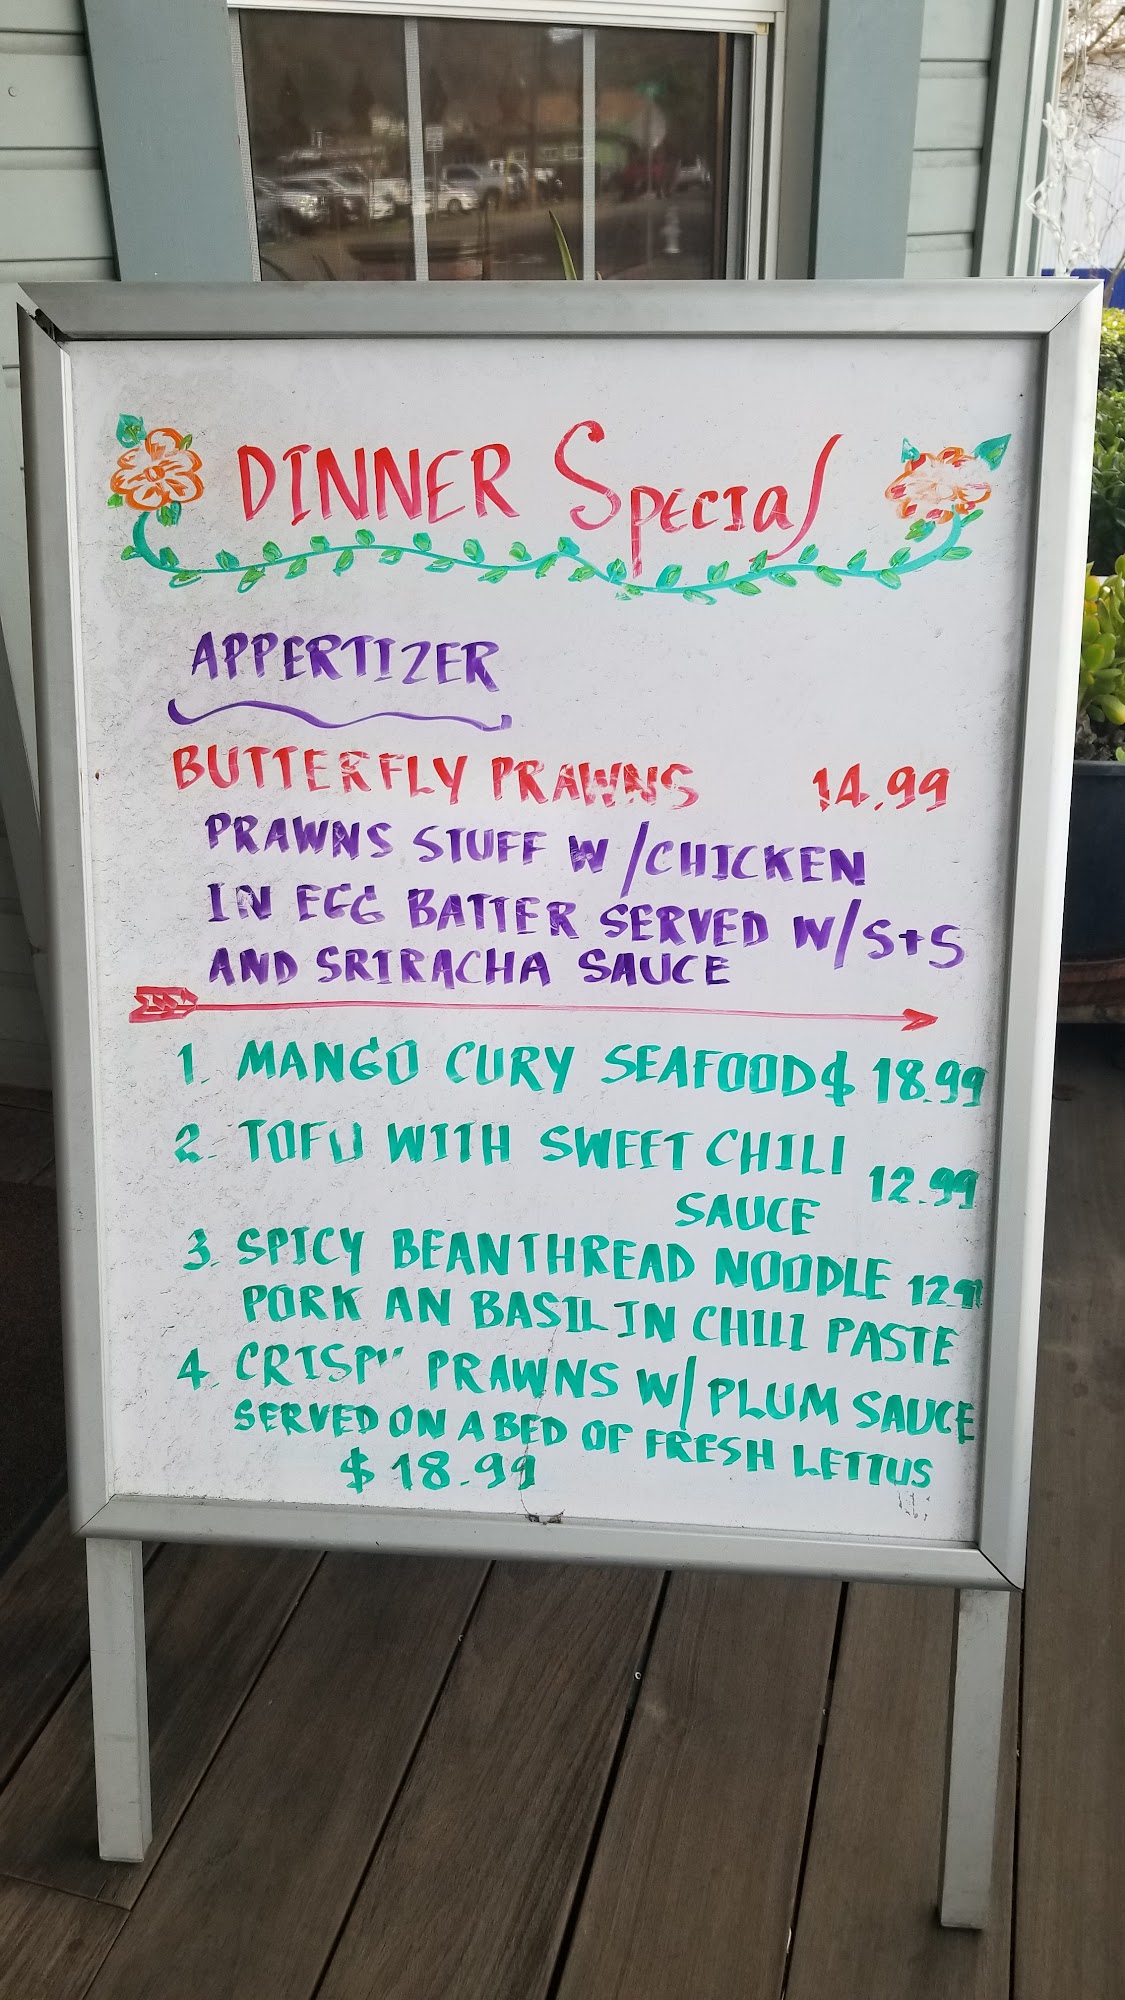 DINNER Special
APPERTIZER
BUTTERFLY PRAWNS 14.99
PRAWNS STUFF W/CHICKEN
IN EGG BATTER SERVED W/S+S
AND SRIRACHA SAUCE
1. MANGO CURY SEAFOOD $ 18.99
2. TOFU WITH SWEET CHILI 12.99
SAUCE
3. SPICY BEANTHREAD NOODLE
PORK AN BASIL IN CHILI PASTE
4. CRISPY PRAWNS W/PLUM SAUCE
SERVED ON A BED OF FRESH LETTUS
$ 18.99